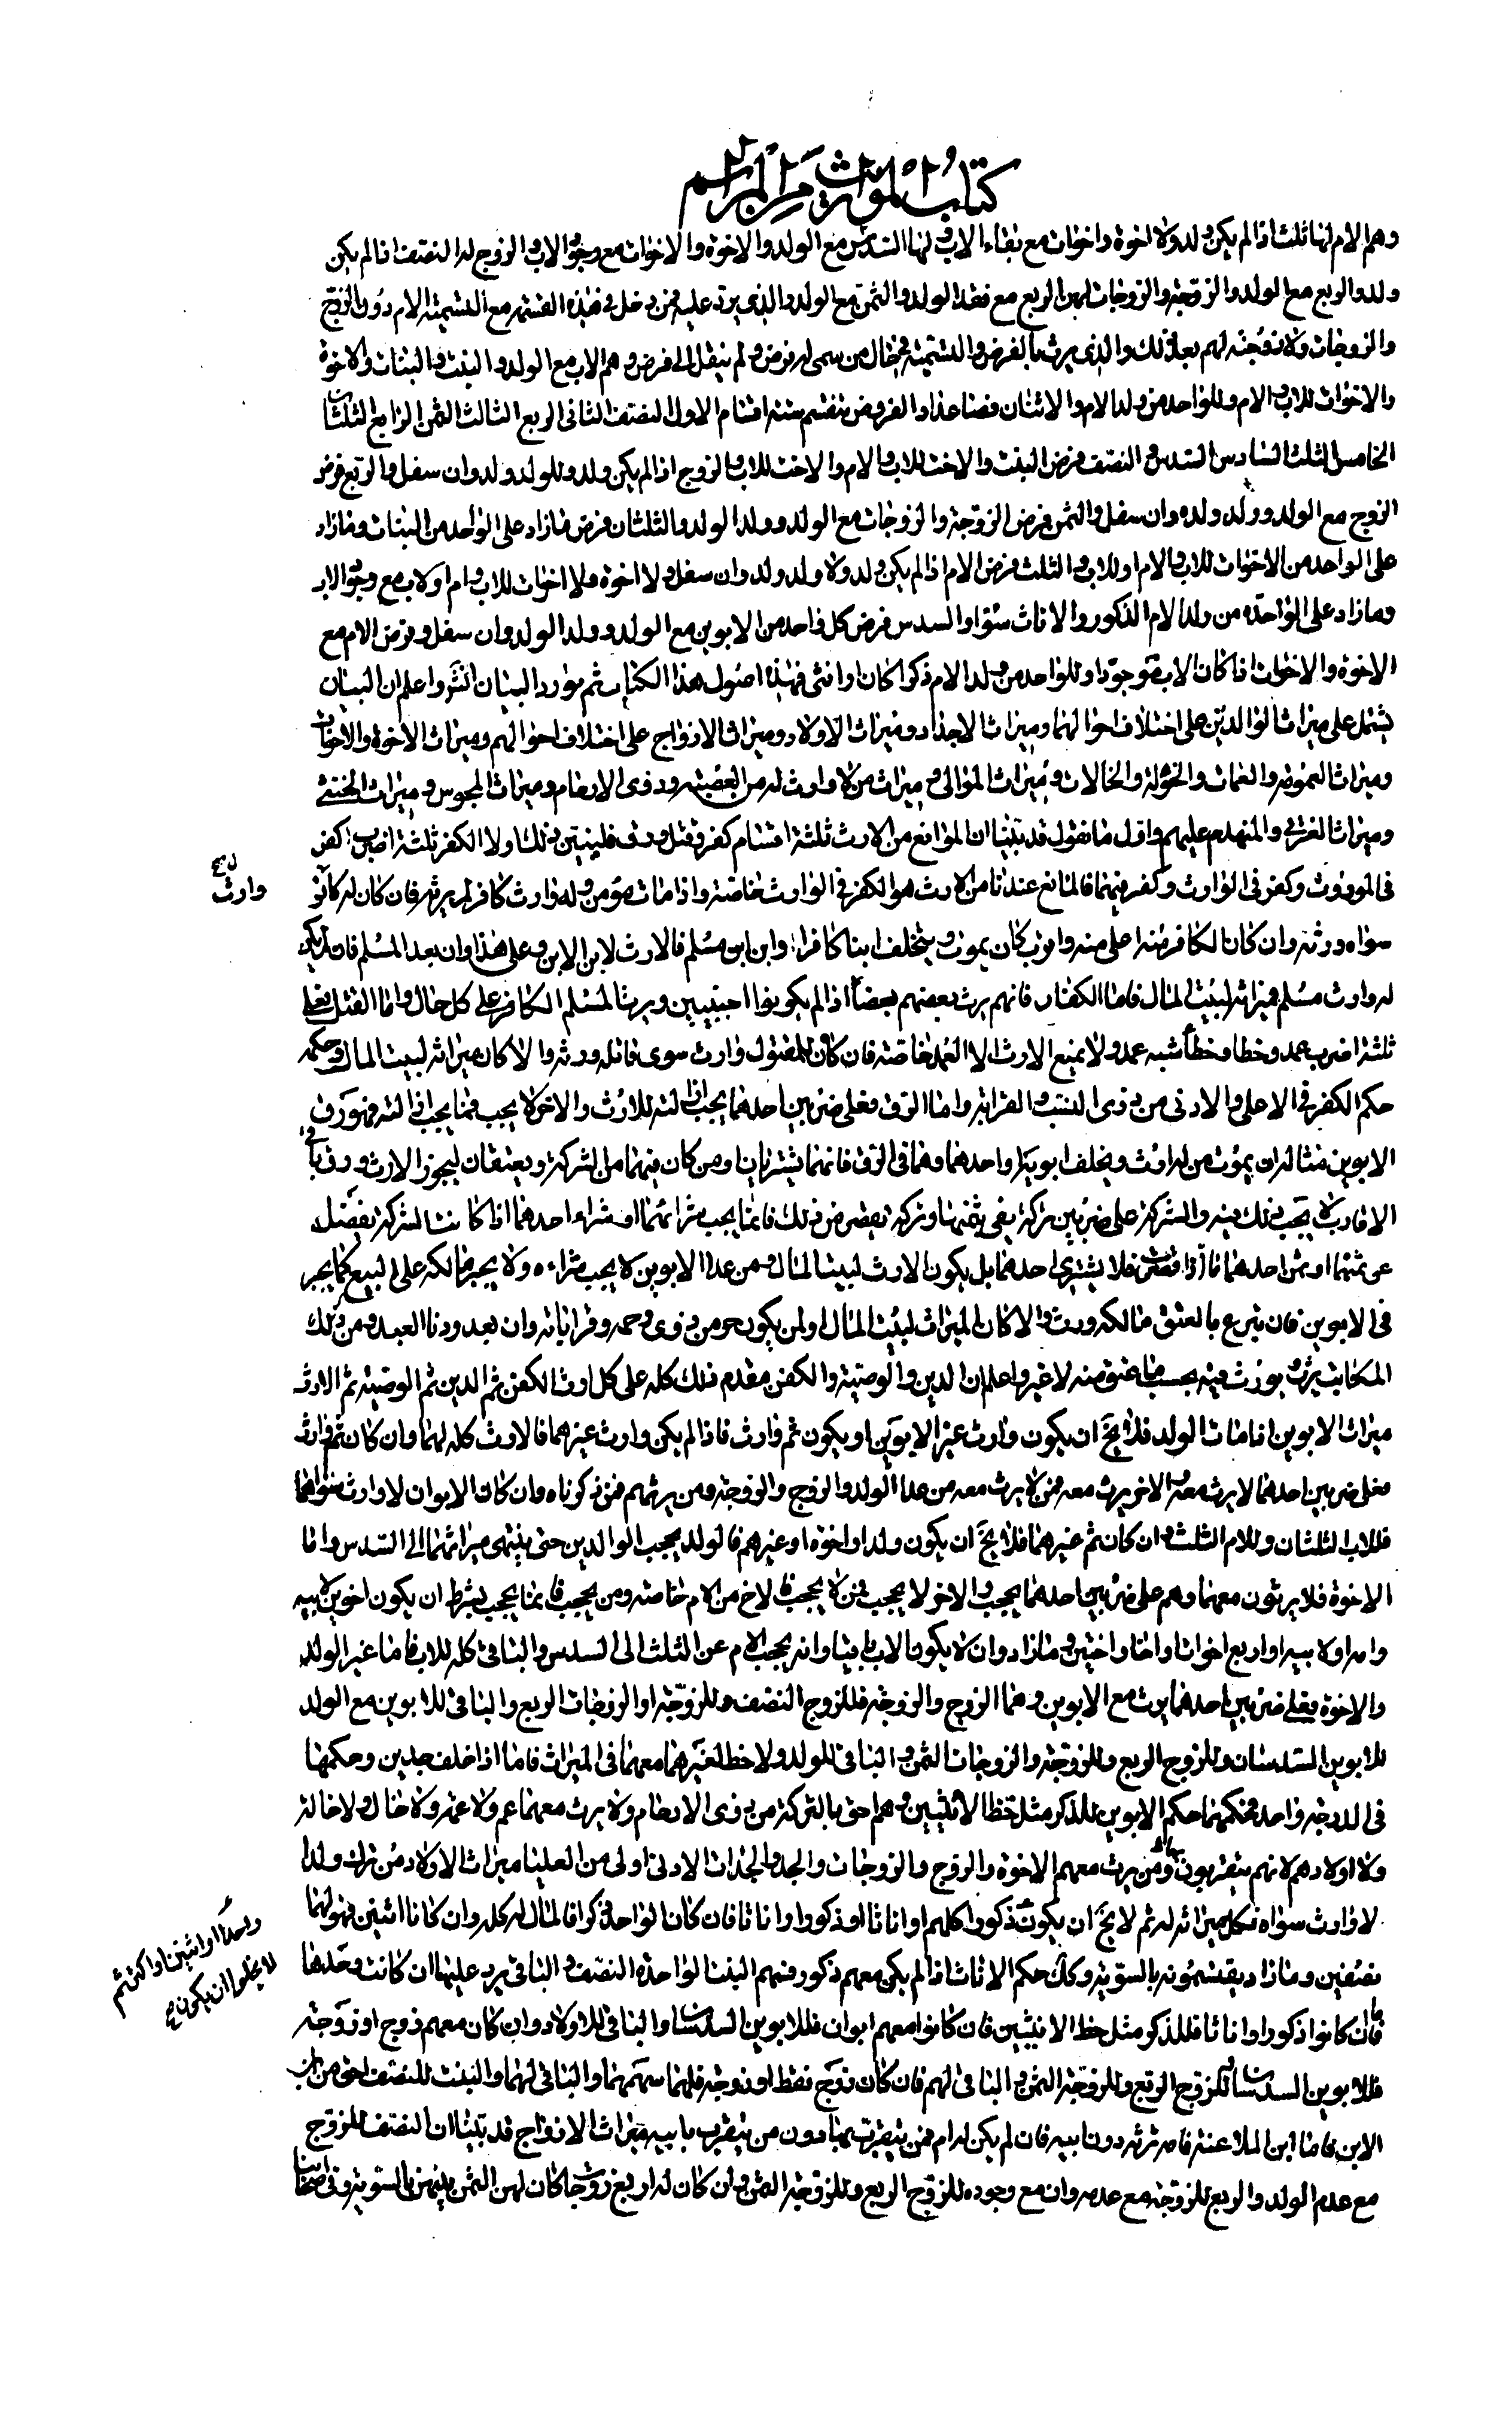 كتاب المواريث من المراسم
وهم الام لها ثلث اذا لم يكن ولد ولا اخوة واخوات مع بقاء الاب ولها السدس مع الولد والاخوة والاخوات مع وجود الاب والزوج له النصف اذا لم يكن
ولد والربع مع الولد والزوجة والزوجات لهن الربع مع فقد الولد والثمن مع الولد والذي يرد عليه من دخل في هذه القسمة مع التسمية الام دون الزوج
والزوجات ولا زوجة لهم بعد ذلك والذي يرث بالفرض والتسمية في حال من سمى له فرض ولم ينقل الى فرض وهم الاب مع الولد والبنت والبنات والاخوة
والاخوات للاب والام وللواحد من ولد الام والاثنان فصاعدا والفروض تنقسم ستة اقسام الاول النصف الثانى الربع الثالث الثمن الرابع الثلثان
الخامس الثلث السادس السدس والنصف فرض البنت والاخت للاب والام والاخت للاب والزوج اذا لم يكن ولد وللولد ولد وان سفل والربع فرض
الزوج مع الولد وولد ولده وان سفل والثمن فرض الزوجة والزوجات مع الولد وولد الولد والثلثان فرض مازاد على الواحد من البنات ومازاد
على الواحد من الاخوات للاب والام او للاب والثلث فرض الام اذا لم يكن ولد ولا ولد ولد وان سفل ولا اخوة ولا اخوات للاب وام او لاب مع وجود الاب
ومازاد على الواحدة من ولد الام الذكور والاناث سواء والسدس فرض كل واحد من الابوين مع الولد وولد الولد وان سفل وفرض الام مع
الاخوة والاخوات اذا كان الاب موجودا وللواحد من ولد الام ذكرا كان او انثى فهذه اصول هذا الكتاب ثم نورد البيان انشر واعلم ان البيان
يشتمل على ميراث الوالدين على اختلاف احوالهما وميراث الاجداد وميراث الاولاد وميراث الازواج على اختلاف احوالهم وميراث الاخوة والاخوات
وميراث العمومة والعمات والخؤلة والخالات وميراث الموالى وميراث من لا وارث له من العصبة وذوى الارحام وميراث المجوس وميراث الخنثى
وميراث الغرقى والمنهدم عليهم واول ما نقول قد بينا ان الموانع من الارث ثلثة اقسام كفر وقتل ورق فلنبين ذلك اولا الكفر ثلثة اضرب كفر
فى الموروث وكفر فى الوارث وكفر فيهما فالمانع عندنا من الارث هو الكفر فى الوارث خاصة واذا مات مؤمن وله وارث كافر لم يرثه فان كان له
سواه ورثه وان كان الكافر منه اعلى منه واقرب كان يموت ويتخلف ابنا كافرا وابن ابن مسلم فالارث لابن الابن وعلى هذا وان بعد المسلم فان لم يكن
له وارث مسلم فميراثه لبيت المال فاما الكفار فانهم يرث بعضهم بعضا اذا لم يكونوا اجنبيين ويرث المسلم الكافر على كل حال واما القتل فعلى
ثلثة اضرب عمد وخطا وخطأ شبه عمد ولا يمنع الارث الا العمد خاصة فان كان للمقتول وارث سوى قاتله ورثه والا كان ميراثه لبيت المال وحكمه
حكم الكفر فى الاعلى والادنى من ذوى النسب والقرابة واما الرق فعلى ضربين احدهما يجب ازالته للارث والاخر لا يجب فما يجب ازالته فهو رق
الابوين مثاله ان يموت من له ارث ويخلف ابويه او احدهما وهما فى الرق فانهما يشتريان او من كان فيهما من التركة ويعتقان ليحوز الارث ورق باقى
الاقارب لا يجب ذلك فيه والتركة على ضربين تركة يفى بثمنهما وتركة تقصر عن ذلك فانما يجب شرائهما او شراء احدهما اذا كانت التركة يفضل
عن ثمنهما او ثمن احدهما فاذا قصرت فلا يشترى احدهما بل يكون الارث لبيت المال ومن عدا الابوين لا يجب شراءه ولا يجبر مالكه على البيع كما يجبر
فى الابوين فان تبرع بالعتق مالكه ورث والا كان الميراث لبيت المال او لمن يكون حر من ذوى رحمه وقراباته وان بعد دون العبد ومن ذلك
المكاتب يرث ويورث فيه بحسب ما عتق منه لا غير واعلم ان الدين والوصية والكفن مقدم ذلك كله على كل ارث الكفن ثم الدين ثم الوصية ثم الارث
ميراث الابوين اذا مات الولد فلا يخ ان يكون وارث غير الابوين او يكون ثم وارث فاذا لم يكن وارث غيرهما فالارث كله لهما وان كان ثم وارث
فعلى ضربين احدهما لا يرث معه والاخر يرث معه فمن لا يرث معه من عدا الولد والزوج والزوجة ومن يرثهم فمن ذكرناه وان كان الابوان لا وارث سواهما
فللاب الثلثان وللام الثلث وان كان ثم غيرهما فلا يخ ان يكون ولدا او اخوة او غيرهم فالولد يحجب الوالدين حتى ينتهى ميراثهما الى السدس واما
الاخوة فلا يرثون معهما وهم على ضربين احدهما يحجب والاخر لا يحجب فمن لا يحجب فالاخ من الام خاصة ومن يحجب فانما يحجب بشرط ان يكون اخوين لابيه
وامه او لابيه او اربع اخوات او اخا واختين وما زاد وان لا يكون الاب باقيا وانه يحجب الام عن الثلث الى السدس والباقى كله للاب فاما غير الولد
والاخوة فعلى ضربين احدهما يرث مع الابوين وهما الزوج والزوجة فللزوج النصف وللزوجة او الزوجات الربع والباقى للابوين مع الولد
للابوين السدسان وللزوج الربع وللزوجة والزوجات الثمن والباقى للولد ولا حظ لغيرهما معهما فى الميراث فاما اذا خلف جدين وحكمهما
فى الدرجة واحد فحكمهما حكم الابوين للذكر مثل حظ الانثيين وهم احق بالتركة من ذوى الارحام ولا يرث معهما عم ولا عمة ولا خال ولا خالة
ولا اولادهم لانهم يتقربون بهما ومن يرث معهم الاخوة والزوج والزوجات والجد والجدات الادنى اولى من العليا ميراث الاولاد من ترك ولدا
لا وارث سواه فكل ميراثه له ثم لا يخ ان يكون ذكورا كلهم او اناثا او ذكورا واناثا فان كان الواحد ذكرا فالمال له كله وان كانا اثنين فهو لهما
نصفين ومازاد يقتسمونه بالسوية وكك حكم الاناث اذا لم يكن معهم ذكور فمنهم البنت الواحدة النصف والباقى يرد عليها ان كانت وحدها
فان كانوا ذكورا واناثا فللذكر مثل حظ الانثيين فان كانوا معهم ابوان فللابوين السدسان والباقى للاولاد وان كان معهم زوج او زوجة
فللابوين السدسان وللزوج الربع وللزوجة الثمن والباقى لهم فان كان زوج فقط او زوجة فلهما سهمهما والباقى لهما والبنت للنصف احق من ابن
الابن فاما ابن الملاعنة فامه ترثه دون ابيه فان لم يكن له ام فمن يتقرب بها دون من يتقرب بابيه ميراث الازواج قد بينا ان النصف للزوج
مع عدم الولد والربع للزوجة مع عدمه وان مع وجوده للزوج الربع وللزوجة الثمن وان كان له اربع زوجات كان لهن الثمن بينهن بالسوية وفى اصحابنا
وارث
واحدا او اثنين او اكثر ثم
لا يخلوا ان يكون